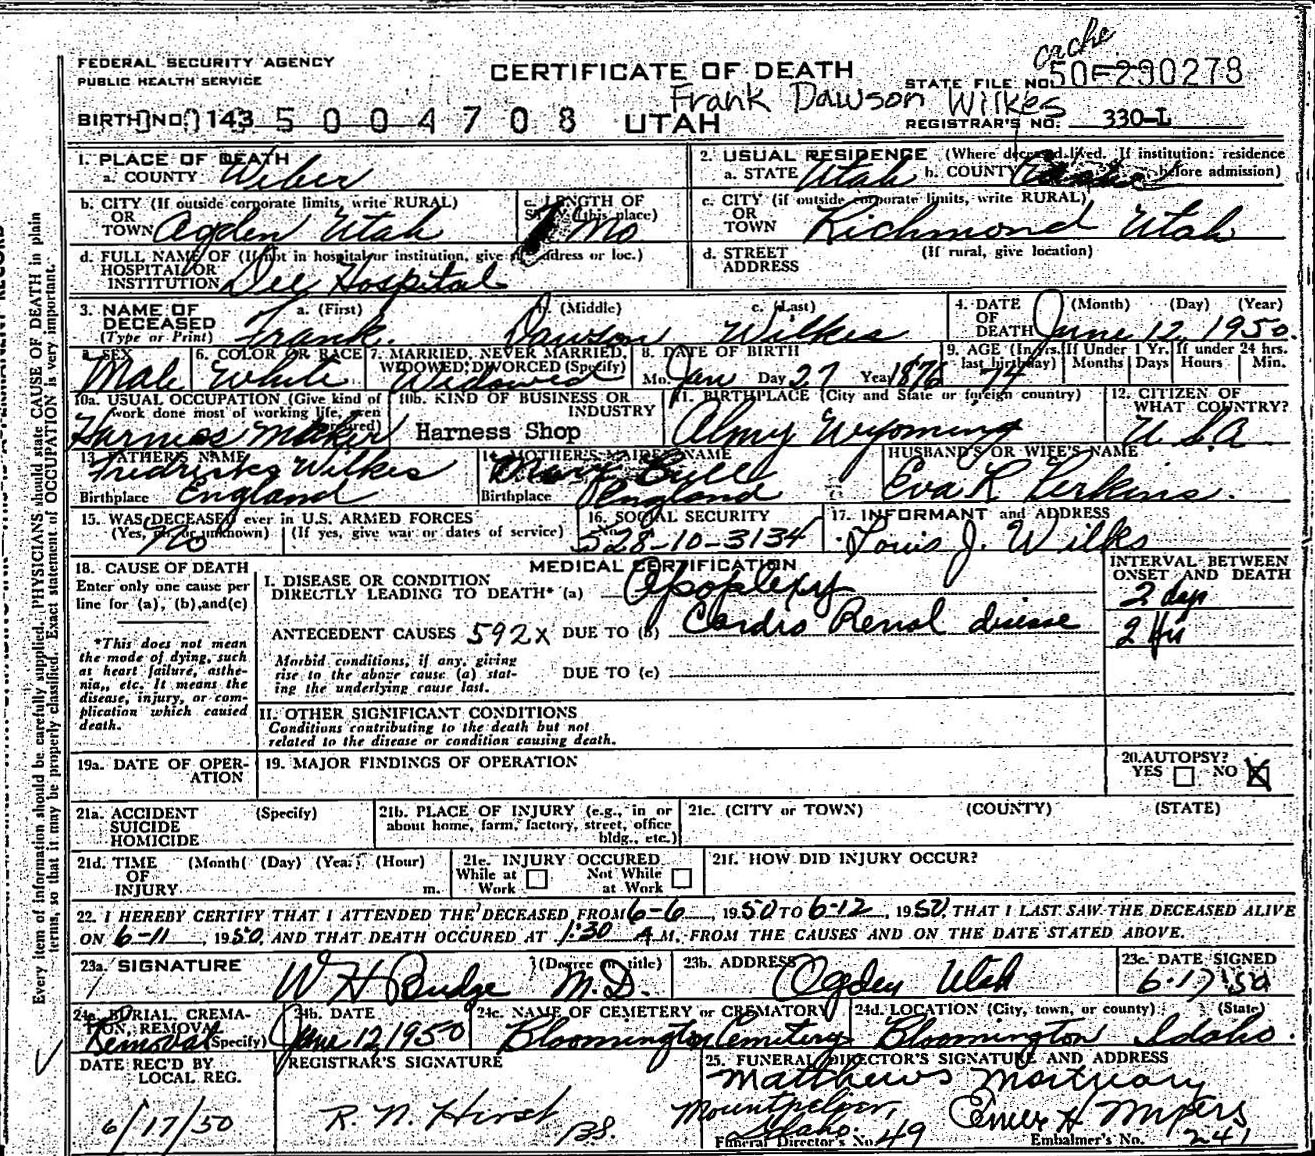 cache
FEDERAL SECURITY AGENCY
PUBLIC HEALTH SERVICE
CERTIFICATE OF DEATH
STATE FILE NO. 50-290278
Frank Dawson Wilkes
BIRTH NO. 143 5 0 0 4 7 0 8 UTAH
REGISTRAR'S NO. 330-L
1. PLACE OF DEATH
a. COUNTY Weber
2. USUAL RESIDENCE (Where deceased lived. If institution: residence before admission)
a. STATE Utah b. COUNTY
b. CITY (If outside corporate limits, write RURAL)
OR
TOWN Ogden Utah
c. LENGTH OF
STAY (this place)
Mo
c. CITY (if outside corporate limits, write RURAL)
OR
TOWN Richmond Utah
d. FULL NAME OF (If not in hospital or institution, give st. address or loc.)
HOSPITAL OR
INSTITUTION Dee Hospital
d. STREET
ADDRESS
(If rural, give location)
3. NAME OF
DECEASED
(Type or Print)
a. (First) b. (Middle) c. (Last)
Frank. Dawson Wilkes
4. DATE
OF
DEATH
(Month) (Day) (Year)
June 12, 1950.
5. SEX
Male
6. COLOR OR RACE
White
7. MARRIED, NEVER MARRIED,
WIDOWED, DIVORCED (Specify)
Widowed
8. DATE OF BIRTH
Mo. Jan Day 27 Year 1876
9. AGE (In yrs. last birthday) 74
If Under 1 Yr.
Months Days
If under 24 hrs.
Hours Min.
10a. USUAL OCCUPATION (Give kind of
work done most of working life, even
retired)
Harness Maker
10b. KIND OF BUSINESS OR
INDUSTRY
Harness Shop
11. BIRTHPLACE (City and State or foreign country)
Almy Wyoming
12. CITIZEN OF
WHAT COUNTRY?
U S A
13. FATHER'S NAME
Fredricks Wilkes
Birthplace England
14. MOTHER'S MAIDEN NAME
Mary Bull
Birthplace England
HUSBAND'S OR WIFE'S NAME
Eva R Perkins.
15. WAS DECEASED ever in U.S. ARMED FORCES
(Yes, no, or unknown) (If yes, give war or dates of service)
No
16. SOCIAL SECURITY
528-10-3134
17. INFORMANT and ADDRESS
Louis J. Wilks
18. CAUSE OF DEATH
Enter only one cause per
line for (a), (b), and (c)
*This does not mean
the mode of dying, such
as heart failure, asthe-
nia,, etc. It means the
disease, injury, or com-
plication which caused
death.
MEDICAL CERTIFICATION
I. DISEASE OR CONDITION
DIRECTLY LEADING TO DEATH* (a) Apoplexy
ANTECEDENT CAUSES 592x DUE TO (b) Cardio Renal disease
Morbid conditions, if any, giving
rise to the above cause (a) stat-
ing the underlying cause last.
DUE TO (c)
INTERVAL BETWEEN
ONSET AND DEATH
2 days
II. OTHER SIGNIFICANT CONDITIONS
Conditions contributing to the death but not
related to the disease or condition causing death.
19a. DATE OF OPER-
ATION
19. MAJOR FINDINGS OF OPERATION
20. AUTOPSY?
YES NO X
21a. ACCIDENT
SUICIDE
HOMICIDE
(Specify)
21b. PLACE OF INJURY (e.g., in or
about home, farm, factory, street, office
bldg., etc.)
21c. (CITY or TOWN) (COUNTY) (STATE)
21d. TIME
OF
INJURY
(Month) (Day) (Year) (Hour)
m.
21e. INJURY OCCURED
While at
Work
Not While
at Work
21f. HOW DID INJURY OCCUR?
22. I HEREBY CERTIFY THAT I ATTENDED THE DECEASED FROM 6-6, 1950 TO 6-12, 1950, THAT I LAST SAW THE DECEASED ALIVE
ON 6-11, 1950, AND THAT DEATH OCCURED AT 1:30 A M. FROM THE CAUSES AND ON THE DATE STATED ABOVE.
23a. SIGNATURE (Degree or title)
W H Budge M.D.
23b. ADDRESS
Ogden Utah
23c. DATE SIGNED
6-17 50
24a. BURIAL, CREMA-
TION, REMOVAL
(Specify)
Removal
24b. DATE
June 12, 1950
24c. NAME OF CEMETERY or CREMATORY
Bloomington Cemetery
24d. LOCATION (City, town, or county) (State)
Bloomington Idaho.
DATE REC'D BY
LOCAL REG.
6/17/50
REGISTRAR'S SIGNATURE
R. N. Hirst
BS.
25. FUNERAL DIRECTOR'S SIGNATURE AND ADDRESS
Matthews Mortuary
Mountpelier,
Idaho.
Funeral Director's No. 49
H Myers
Embalmer's No. 241
Every item of information should be carefully supplied. PHYSICIANS should state CAUSE OF DEATH in plain
terms, so that it may be properly classified. Exact statement of OCCUPATION is very important.